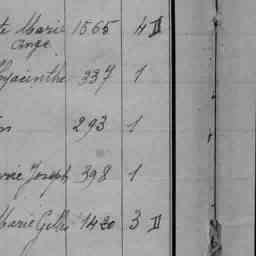 te Marie 1565 4 II
Ange
Hyacinthe 337 1
293 1
Joseph 398 1
Marie Gilles 1420 3 II